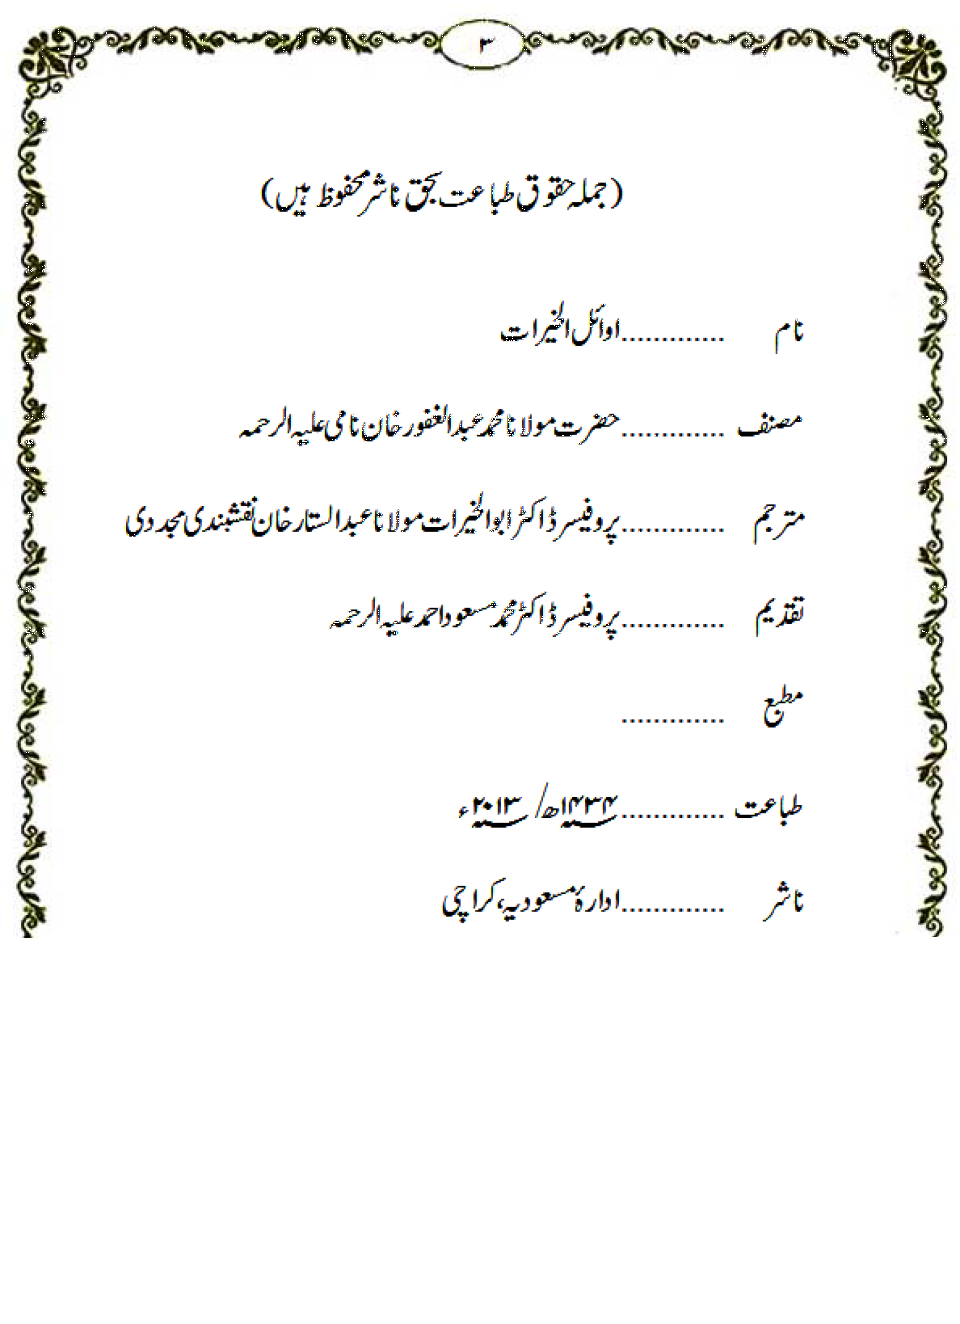 ۳
(جملہ حقوق طباعت بحق ناشر محفوظ ہیں)
نام .............اوائل الخیرات
مصنف .............حضرت مولانا محمد عبدالغفور خان نامی علیہ الرحمہ
مترجم .............پروفیسر ڈاکٹر ابوالخیرات مولانا عبدالستار خان نقشبندی مجددی
تقدیم .............پروفیسر ڈاکٹر محمد مسعود احمد علیہ الرحمہ
مطبع .............
طباعت .............۱۴۳۴ھ/ ۲۰۱۳ء
ناشر .............ادارۂ مسعودیہ، کراچی